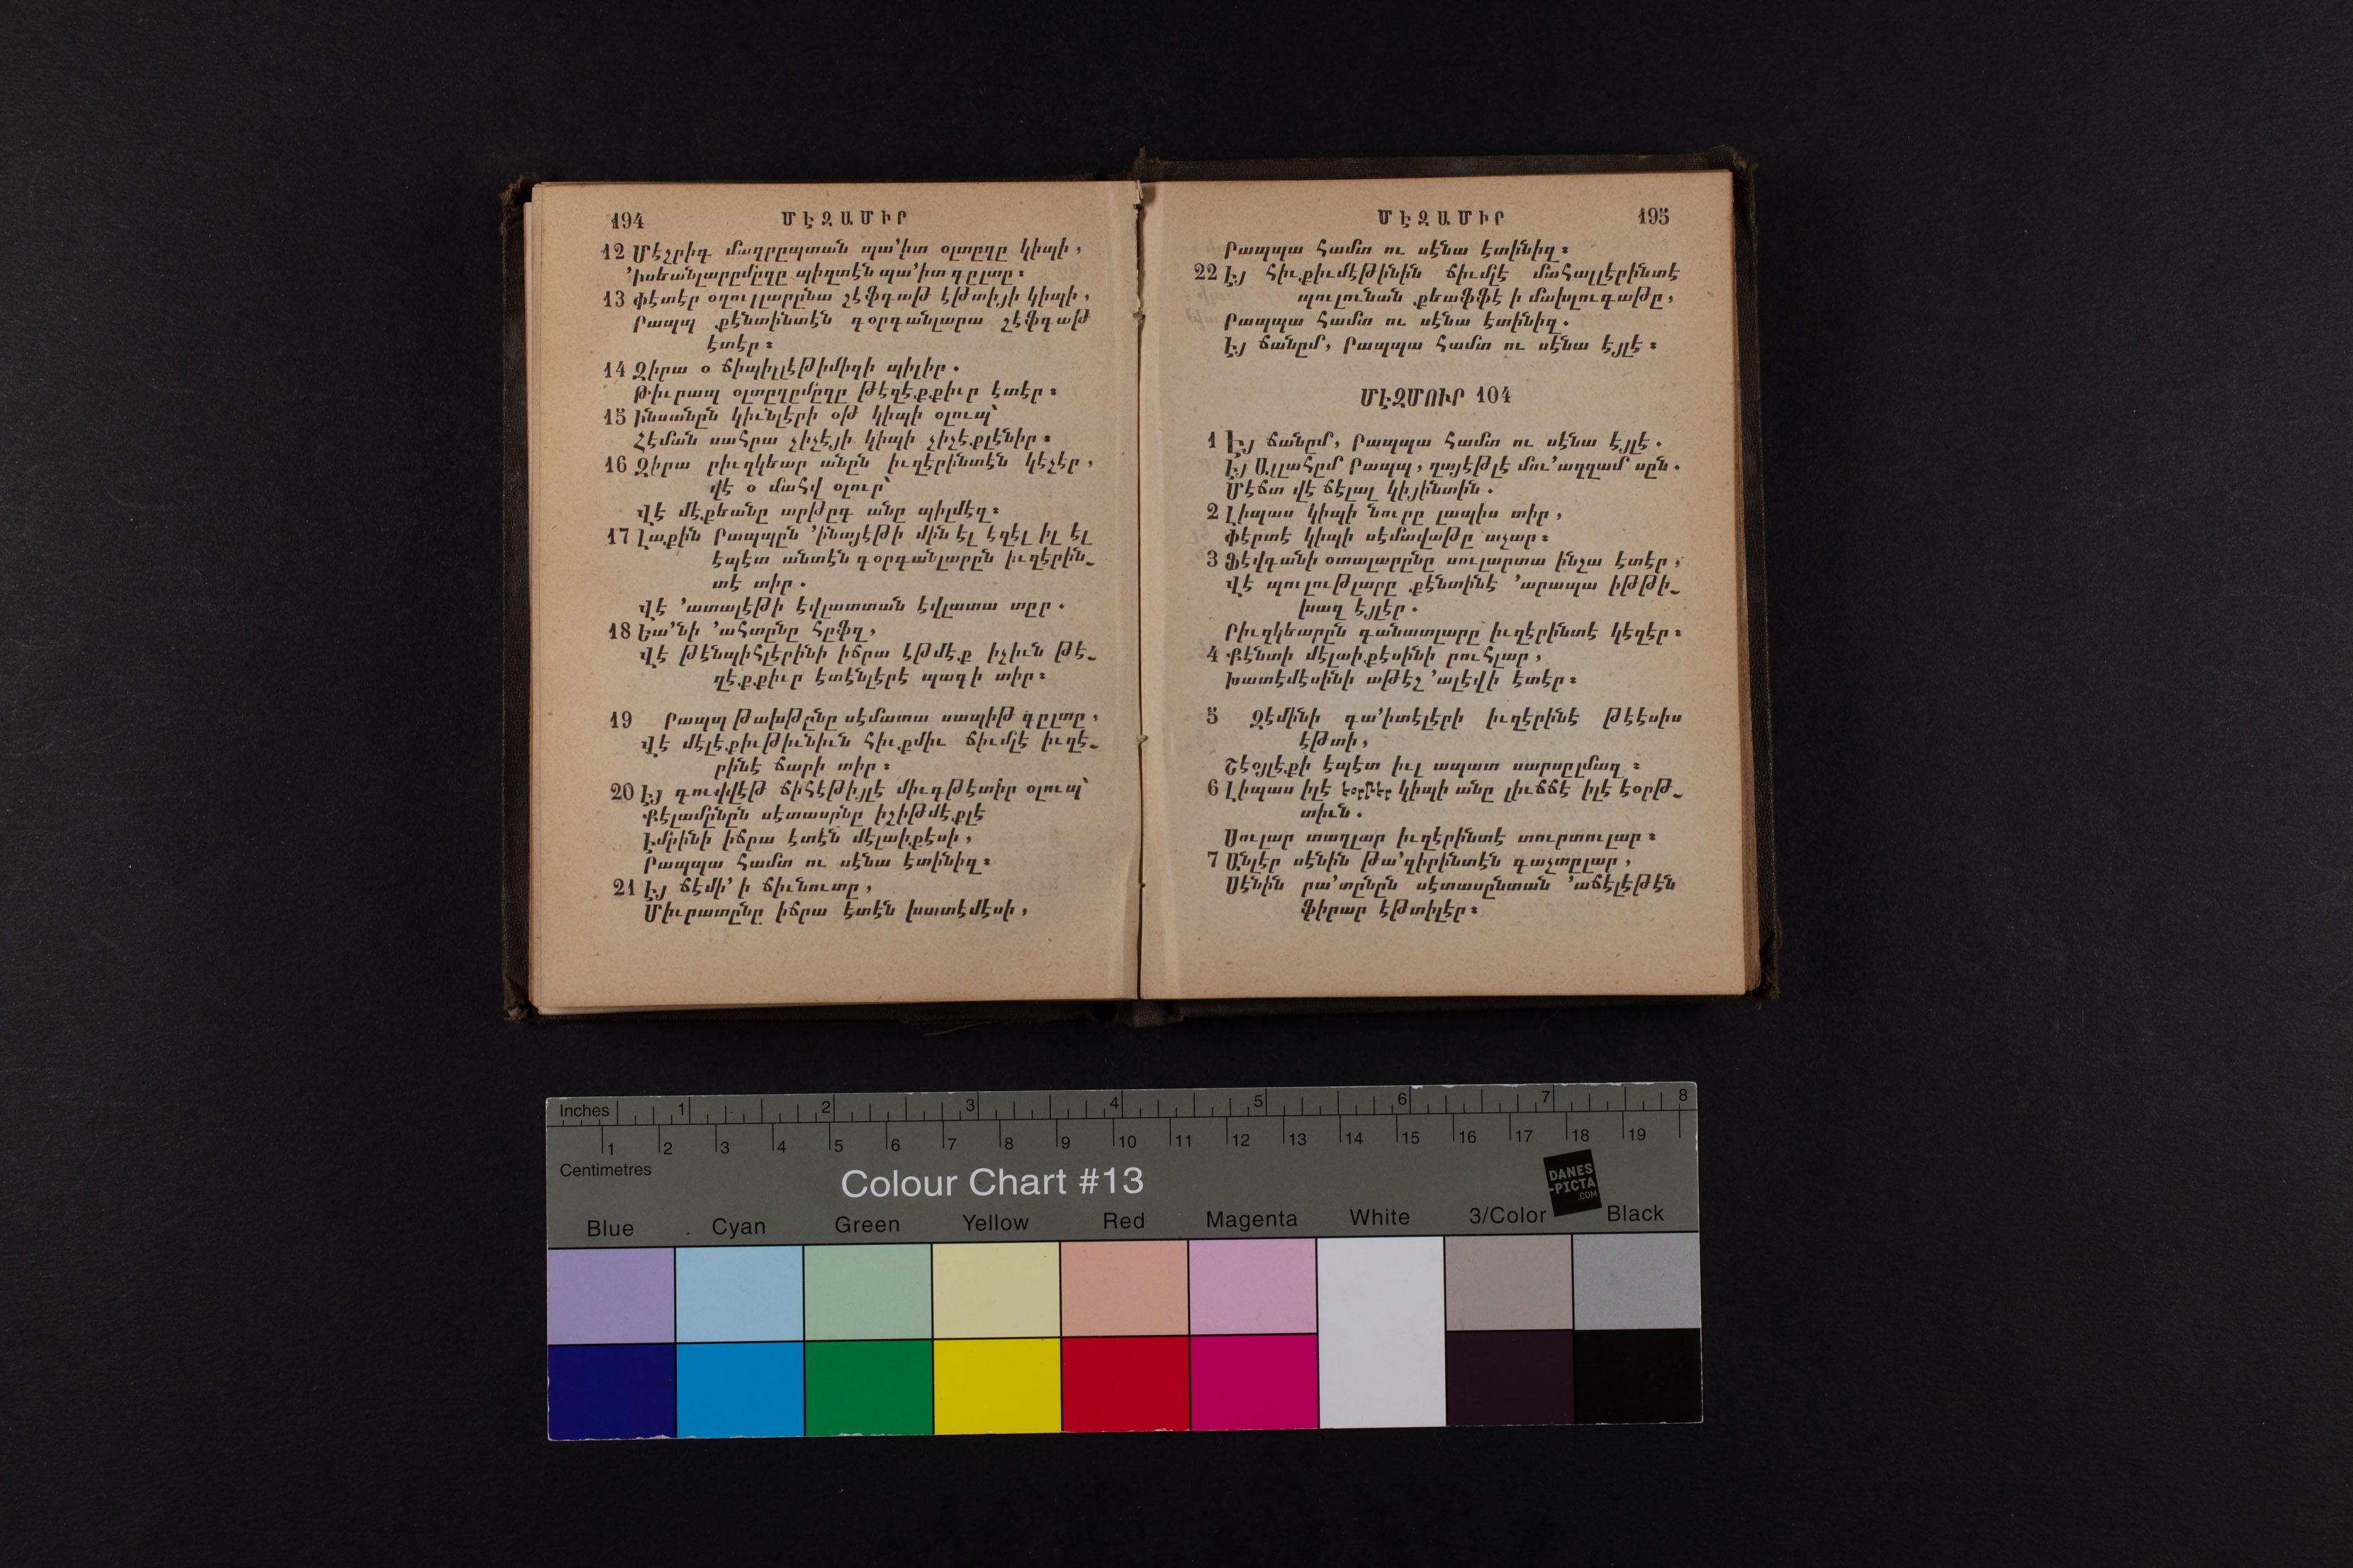 194 ՄԷԶԱՄԻՐ
12 Մէշրիգ մաղրըպտան պա՚իտ օլտըղը կիպի,
՚իսեանլարըմըզը պիզտէն պա՚իտ գըլտը։
13 Փէտէր օղուլլարընա շէֆգաթ էթտիյի կիպի,
Րապպ քէնտինտէն գօրգանլարա շէֆգաթ
էտէր։
14 Զիրա օ ճիպիլլէթիմիզի պիլիր.
Թիւրապ օլտըղըմըզը թէզէքքիւր էտէր։
15 Ինսանըն կիւնլէրի օթ կիպի օլուպ՝
Հէման սահրա չիչէյի կիպի չիչէքլէնիր։
16 Զիրա րիւզկեար անըն իւզէրինտէն կէչէր,
վէ օ մահվ օլուր՝
Վէ մէքեանը արթըգ անը պիլմէզ։
17 Լաքին Րապպըն ՚ինայէթի մին էլ էզէլ իլ էլ
էպէտ անտէն գօրգանլարըն իւզէրին֊
տէ տիր.
Վէ ՚ատալէթի էվլատտան էվլատա տըր.
18 Եա՚նի ՚ահտընը հըֆզ,
Վէ թէնպիհլէրինի իճրա էթմէք իչիւն թէ֊
զէքքիւր էտէնլէրէ պագի տիր։
19 Րապպ թախթընը սէմատա սապիթ գըլտը,
Վէ մէլէքիւթիւնիւն հիւքմիւ ճիւմլէ իւզէ֊
րինէ ճարի տիր։
20 Էյ գուվվէթ ճիհէթիյլէ միւգթէտիր օլուպ՝
Քէլամընըն սէտասընը իշիթմէքլէ
Էմրինի իճրա էտէն մէլաիքէսի,
Րապպա համտ ու սէնա էտինիզ։
21 Էյ ճէմի՚ ի ճիւնուտը,
Միւրատընը իճրա էտէն խատէմէսի,
ՄԷԶԱՄԻՐ 195
Րապպա համտ ու սէնա էտինիզ։
22 Էյ հիւքիւմէթինին ճիւմլէ մահալլէրինտէ
պուլունան քեաֆֆէ ի մախլուգաթը,
Րապպա համտ ու սէնա էտինիզ.
Էյ ճանըմ, Րապպա համտ ու սէնա էյլէ։
ՄԷԶՄՈՒՐ 104
1 Էյ ճանըմ, Րապպա համտ ու սէնա էյլէ.
Էյ Ալլահըմ Րապպ, ղայէթլէ մու՚ազզամ սըն.
Մէճտ վէ ճէլալ կիյինտին.
2 Լիպաս կիպի նուրը լապիս տիր,
Փէրտէ կիպի սէմավաթը աչար։
3 Ֆէվգանի օտալարընը սուլարտա ինշա էտէր,
Վէ պուլութլարը քէնտինէ ՚արապա իթթի֊
խազ էյլէր.
Րիւզկեարըն գանատլարը իւզէրինտէ կէզէր։
4 Քէնտի մէլաիքէսինի րուհլար,
Խատէմէսինի աթէշ ՚ալէվի էտէր։
5 Զէմինի գա՚իտէլէրի իւզէրինէ թէէսիս
էթտի,
Շէօյլէքի էպէտ իւլ ապատ սարսըլմազ։
6 Լիպաս իլէ էօրթէր կիպի անը լիւճճէ իլէ էօրթ֊
տիւն.
Սուլար տաղլար իւզէրինտէ տուրտուլար։
7 Անլէր սէնին թա՚զիրինտէն գաչտըլար,
Սէնին րա՚տընըն սէտասընտան ՚աճէլէթէն
Ֆիրար էթտիլէր։
Inches 1 2 3 4 5 6 7 8
1 2 3 4 5 6 7 8 9 10 11 12 13 14 15 16 17 18 19
Centimetres
Colour Chart #13
DANES
-PICTA
.COM
Blue Cyan Green Yellow Red Magenta White 3/Color Black